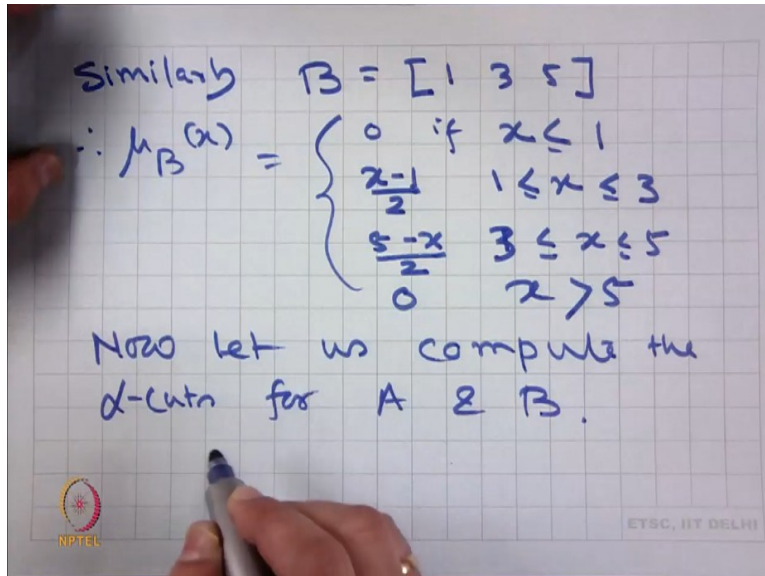 Similarly B = [1 3 5]
∴ μ_B(x) = { 0 if x ≤ 1
x-1/2 1 ≤ x ≤ 3
5-x/2 3 ≤ x ≤ 5
0 x > 5
Now let us compute the
α-cuts for A & B.
NPTEL
ETSC, IIT DELHI